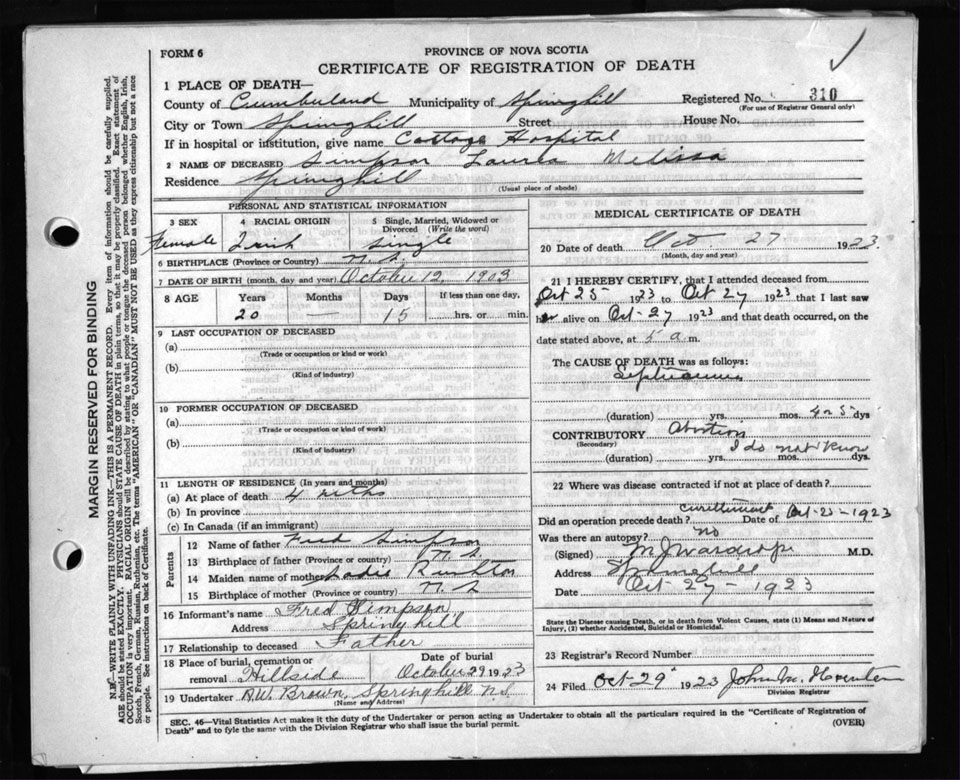 FORM 6
PROVINCE OF NOVA SCOTIA
CERTIFICATE OF REGISTRATION OF DEATH
1 PLACE OF DEATH—
County of Cumberland Municipality of Springhill Registered No. 310
(For use of Registrar General only)
City or Town Springhill Street House No.
If in hospital or institution, give name Cottage Hospital
2 NAME OF DECEASED Simpson Laurea Melissa
Residence Springhill
(Usual place of abode)
PERSONAL AND STATISTICAL INFORMATION
3 SEX 4 RACIAL ORIGIN 5 Single, Married, Widowed or Divorced (Write the word)
Female Irish Single
6 BIRTHPLACE (Province or Country) N.S.
7 DATE OF BIRTH (month, day and year) October 12, 1903
8 AGE Years Months Days If less than one day.
20 — 15 hrs. or min.
9 LAST OCCUPATION OF DECEASED
(a)
(Trade or occupation or kind of work)
(b)
(Kind of industry)
10 FORMER OCCUPATION OF DECEASED
(a)
(Trade or occupation or kind of work)
(b)
(Kind of industry)
11 LENGTH OF RESIDENCE (In years and months)
(a) At place of death 4 mths
(b) In province
(c) In Canada (if an immigrant)
Parents
12 Name of father Fred Simpson
13 Birthplace of father (Province or country) N.S.
14 Maiden name of mother Sadie
15 Birthplace of mother (Province or country) N.S.
16 Informant's name Fred Simpson
Address Springhill
17 Relationship to deceased Father
18 Place of burial, cremation or removal Hillside Date of burial October 29 1923
19 Undertaker A.W. Brown, Springhill N.S.
(Name and Address)
MEDICAL CERTIFICATE OF DEATH
20 Date of death Oct. 27 1923
(Month, day and year)
21 I HEREBY CERTIFY, that I attended deceased from
Oct 25 1923 to Oct 27 1923 that I last saw
alive on Oct-27 1923 and that death occurred, on
date stated above, at 5 a.m.
The CAUSE OF DEATH was as follows:
Septicaemia
(duration) yrs. mos. 4 or 5 dys
CONTRIBUTORY Abortion
(Secondary)
I do not know
(duration) yrs. mos. dys.
22 Where was disease contracted if not at place of death?
Did an operation precede death? curettement Date of Oct-25-1923
Was there an autopsy? no
(Signed) M J Wardrope M.D.
Address Springhill
Date Oct-27-1923
State the Disease causing Death, or in death from Violent Causes, state (1) Means and Nature of
Injury, (2) whether Accidental, Suicidal or Homicidal.
23 Registrar's Record Number
24 Filed Oct 29 1923 John M.
Division Registrar
SEC. 46—Vital Statistics Act makes it the duty of the Undertaker or person acting as Undertaker to obtain all the particulars required in the "Certificate of Registration of
Death" and to fyle the same with the Division Registrar who shall issue the burial permit. (OVER)
MARGIN RESERVED FOR BINDING
N.B.—WRITE PLAINLY WITH UNFADING INK—THIS IS A PERMANENT RECORD. Every item of information should be carefully supplied.
AGE should be stated EXACTLY. PHYSICIANS should STATE CAUSE OF DEATH in plain terms, so that it may be properly classified. Exact statement of
OCCUPATION is very important. RACIAL ORIGIN will be described by stating to what people or tongue the deceased person belonged whether English, Irish,
Scotch, French, German, Russian, Ruthenian, etc. The terms "AMERICAN" OR "CANADIAN" MUST NOT BE USED as they express citizenship but not a race
or people. See instructions on back of Certificate.